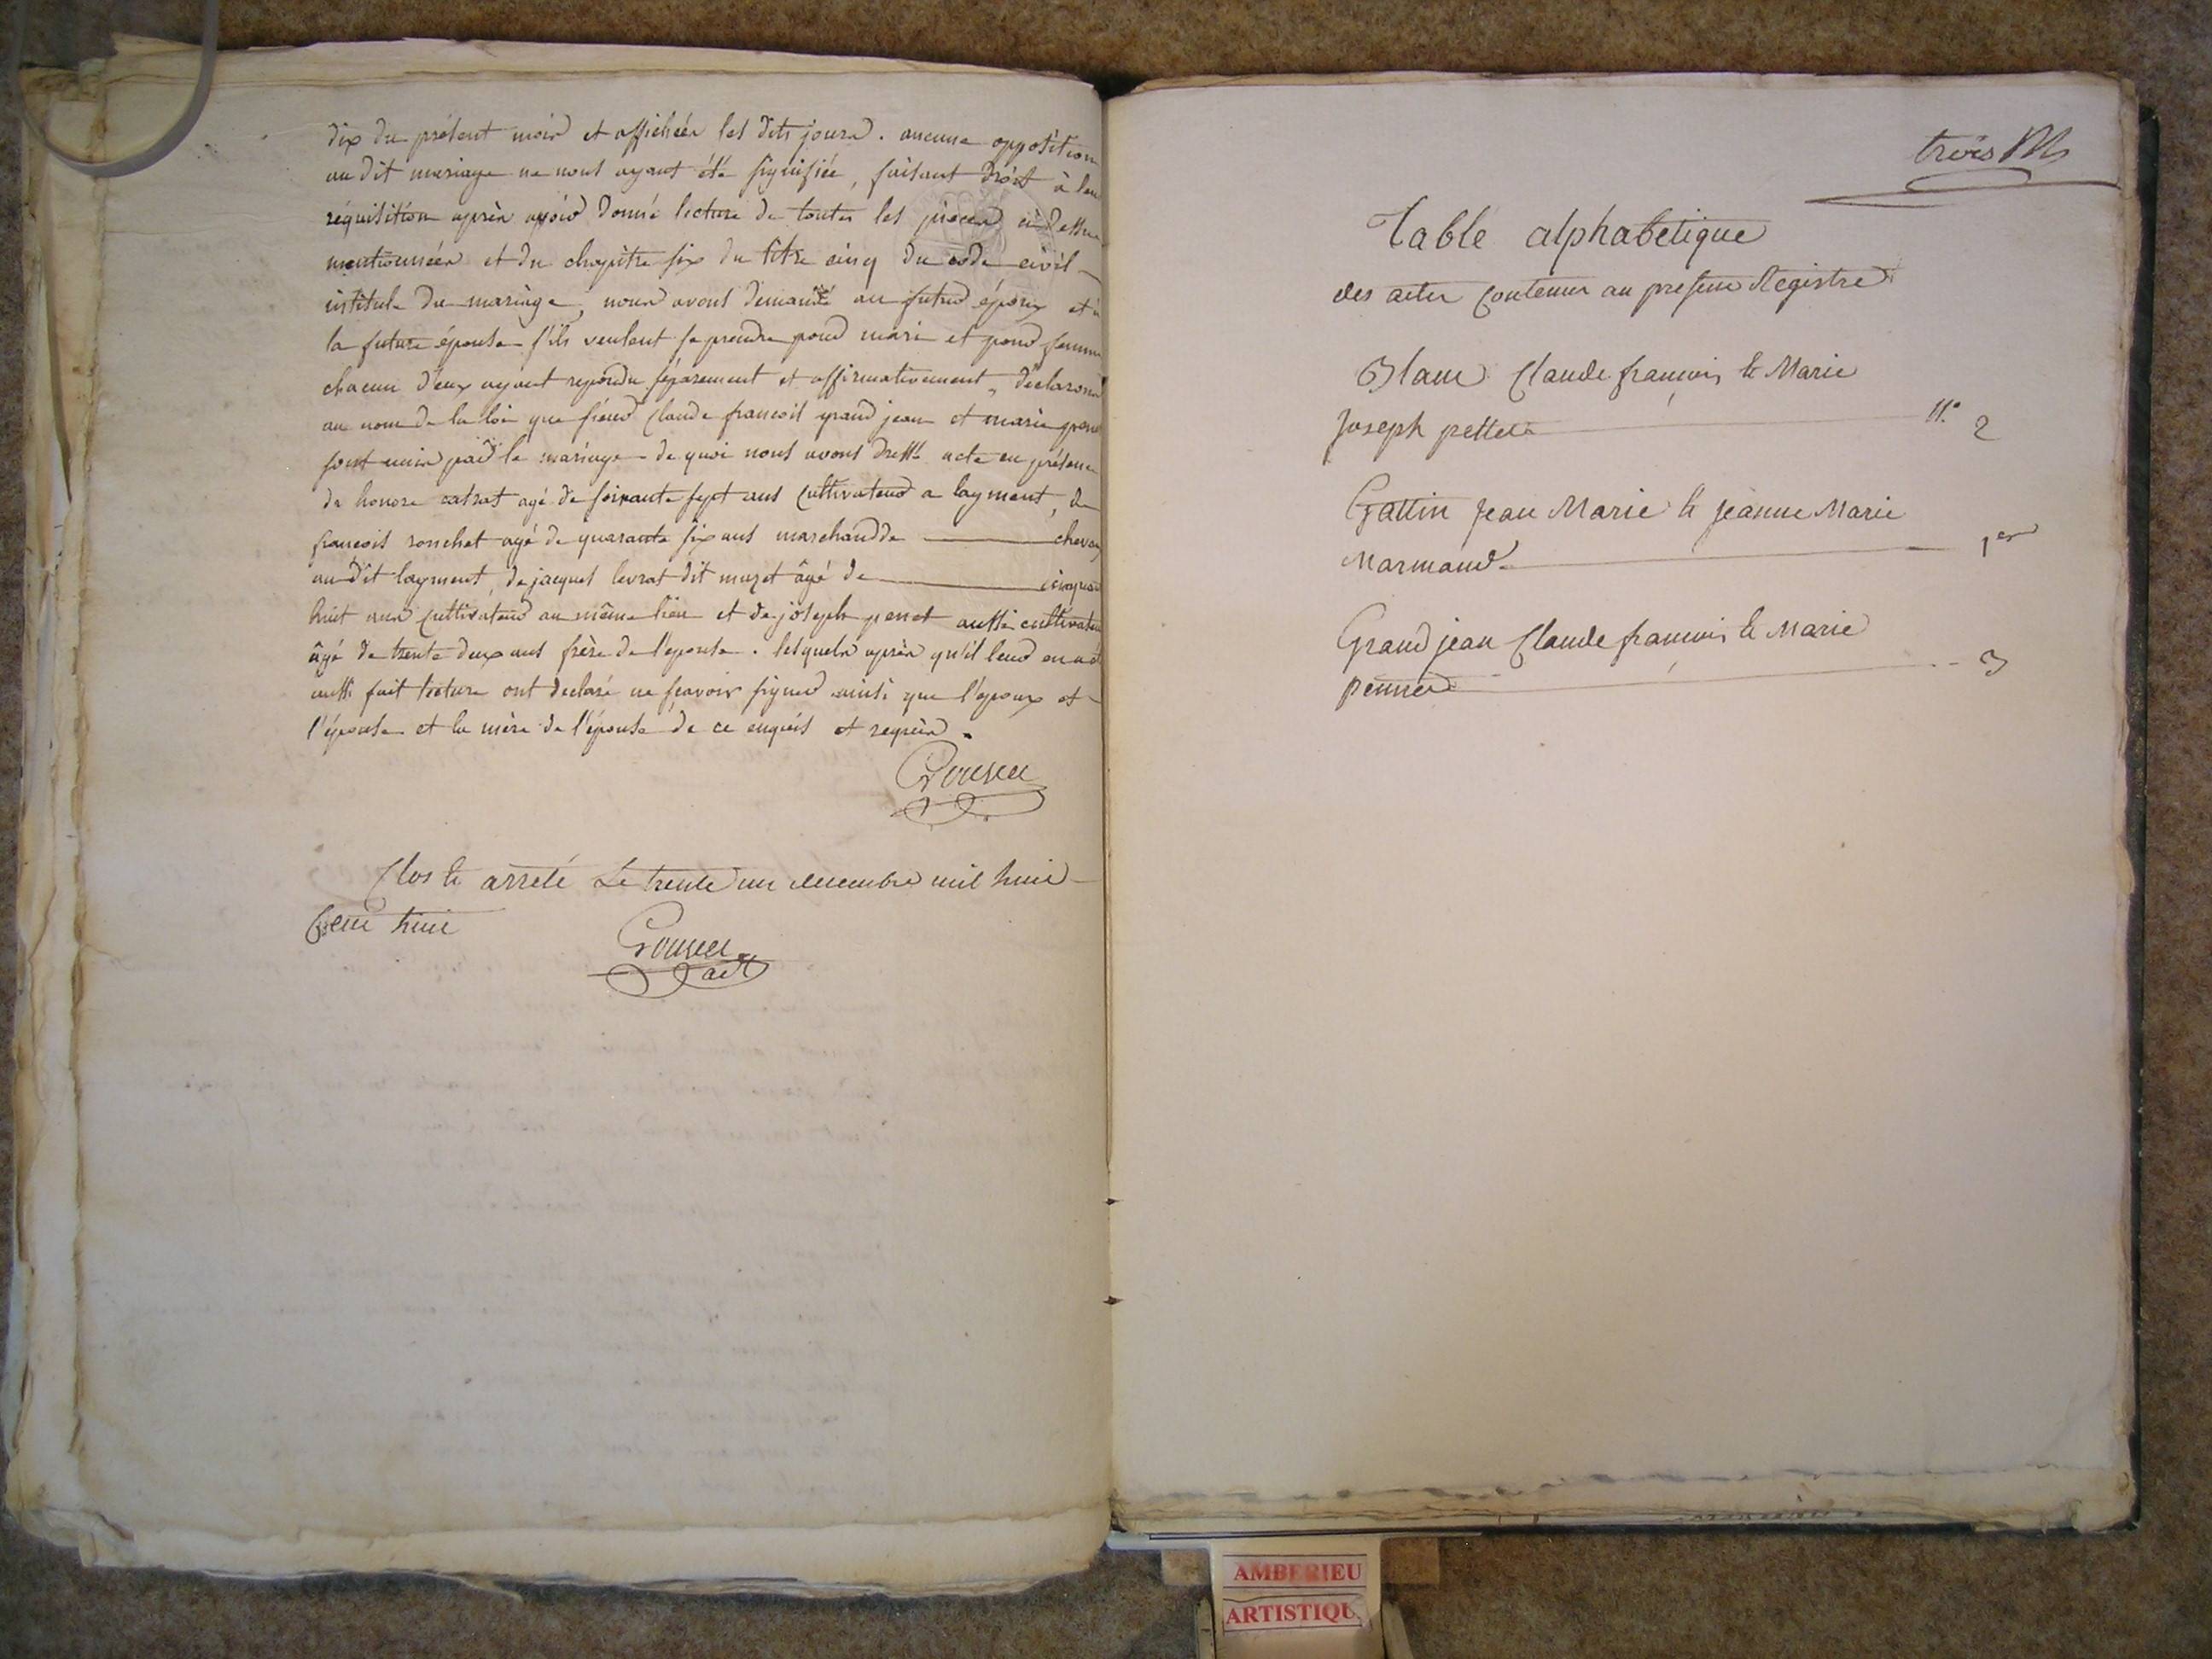 dix du présent mois et affichées les dits jours. aucune opposition
au dit mariage ne nous ayant été signifiée, faisant droit à leur
réquisition après avoir donné lecture de toutes les pièces ci dessus
mentionnées et du chapitre six du titre cinq du code civil
intitulé du mariage, nous avons demandé au futur époux et à
la future épouse s'ils veulent se prendre pour mari et pour femme
chacun d'eux ayant repondu séparement et affirmativement, déclarons
au nom de la loi que sieur Claude francois grand jean et marie
sont unis par le mariage de quoi nous avons dressé acte en présence
de honoré agé de soixante sept ans Cultivateur a layment, de
francois ronchet agé de quarante six ans marchand de chevaux
au dit layment, de jacques levrat dit muzet âgé de cinquante
huit ans Cultivateur au même lieu et de joseph penet aussi cultivateur
âgé de trente deux ans frère de l'epouse. lesquels après qu'il leur en a été
aussi fait lecture ont declaré ne sçavoir signer ainsi que l'époux et
l'épouse et la mère de l'épouse de ce enquis et requis.
Clos & arreté Le trente un decembre mil huit
Cent huit
trois
Table alphabetique
des actes Contenus au present Registre
Blanc Claude francois & Marie
Joseph pettet n.° 2
Gattin Jean Marie & Jeanne Marie
Marmand 1er
Grand jean Claude francois & Marie
pennet 3
AMBERIEU
ARTISTIQU